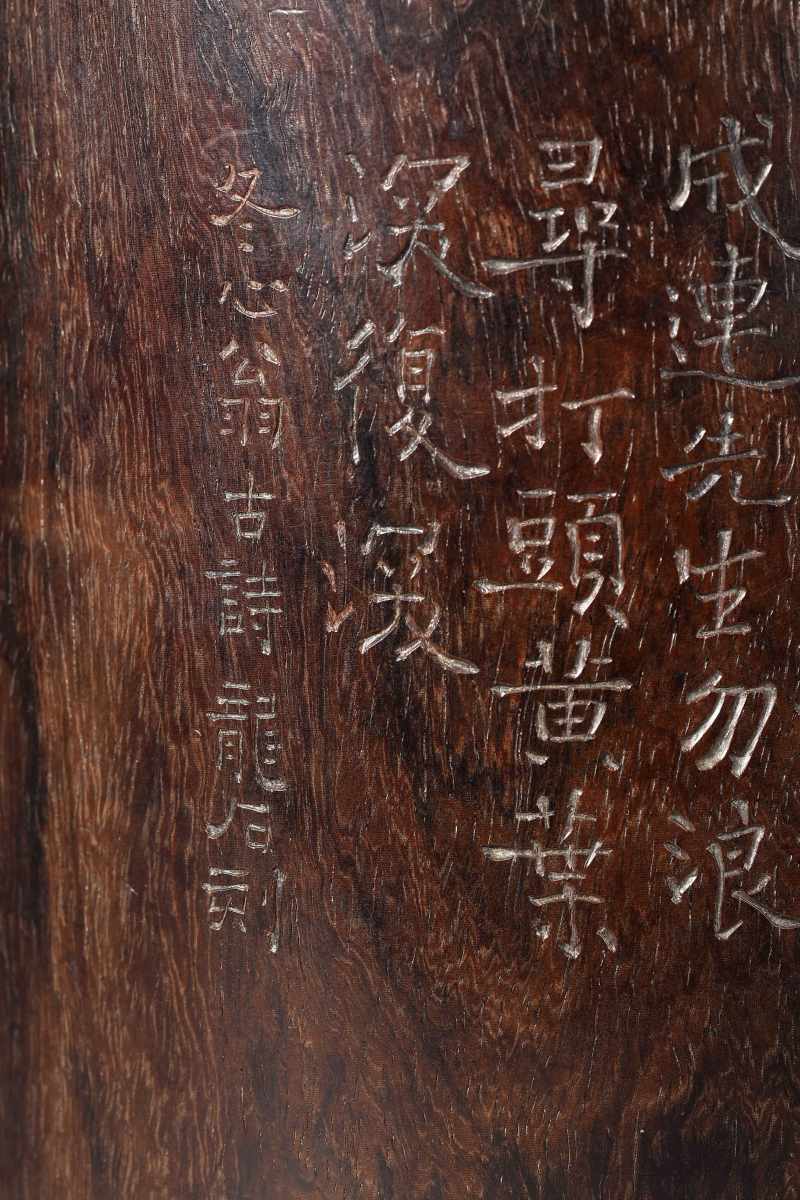 成連先生勿浪
尋打頭黄葉
深復深
冬心翁古詩龍石刻